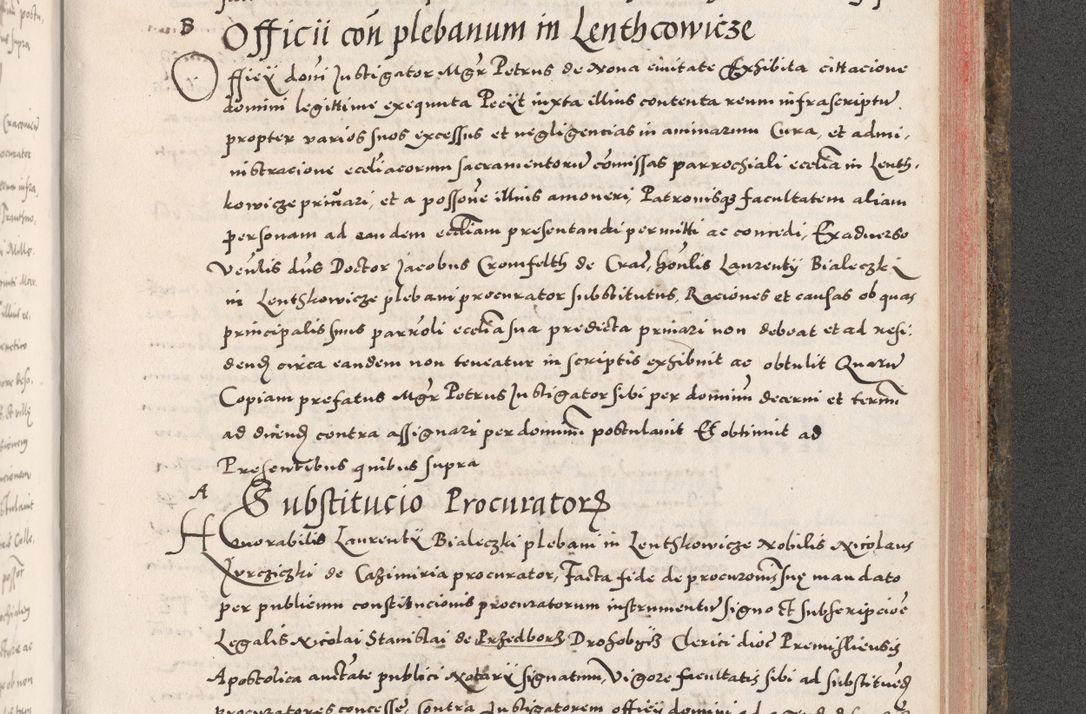 B Officii con plebanum in Lenthcowicze
Officy domi Instigator Mgr Petrus de Nova civitate Exhibita cittacione
domini legittime exequuta Pecyt iuxta illius contenta reum infrascriptu
propter varios suos excessus et negligencias in animarum Cura, et admi,
nistracione eccliacorum sacramentoru comissas parrochiali ecclia in Lenth,
kowicze privari, et a possone illius amoveri, Patronisq facultatem aliam
personam ad eandem eccliam presentandi permitti ac concedi, Exadverso
Venlis dns Doctor Jacobus Cromfelth de Crac, honlis Laurenty Bialeczki
in Lenthkowicze plebani procurator substitutus, Raciones et causas ob quas
principalis suus parroli ecclia sua predicta privari non debeat et ad resi,
dend circa eandem non teneatur in scriptis exhibuit ac obtulit Quaru
Copiam prefatus Mgr Petrus Instigator sibi per dominum decerni et termi
ad dicend contra assignari per dominum postulavit Et obtinuit ad
Presentibus quibus supra
A Substitucio Procurator
Honorabilis Laurenty Bialeczki plebani in Lenthkowicze Nobilis Nicolaus
Jurcziczki de Cazimiria procurator, Facta fide de procuronis sue mandato
per publicum constitucionis procuratorum instrumentu signo et subscripcioe
Legalis Nicolai Stanislai de Przedborz Drohobgis Clerici dioc Premisliensis
Apostolica auctate publici Notary signatum, Vigore facultatis sibi ad substitued
procuratores concesse, Contra Instigatorem officy domini ad